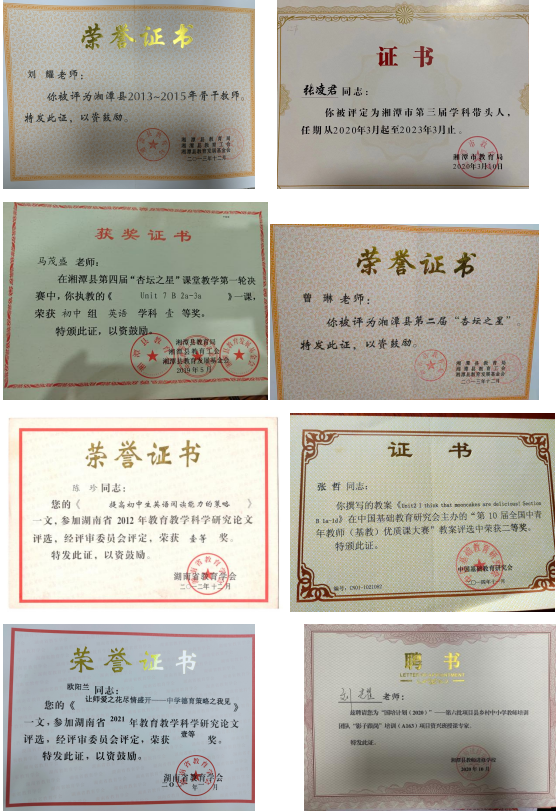 荣誉证书
刘 耀 老师：
你被评为湘潭县2013~2015年骨干教师。
特发此证，以资鼓励。
湘潭县教育局
湘潭县教育工会
湘潭县教育发展基金会
二○一三年十二月
证书
张凌君 同志：
你被评定为湘潭市第三届学科带头人，
任期从2020年3月起至2023年3月止。
湘潭市教育局
2020年3月10日
获奖证书
马茂盛 老师：
在湘潭县第四届“杏坛之星”课堂教学第一轮决
赛中，你执教的《 Unit 7 B 2a-3a 》一课，
荣获 初中 组 英语 学科 壹 等奖。
特颁此证，以资鼓励。
湘潭县教育局
湘潭县教育工会
湘潭县教育发展基金会
2019年5月
荣誉证书
曾 琳 老师：
你被评为湘潭县第二届“杏坛之星”。
特发此证，以资鼓励。
湘潭县教育局
湘潭县教育工会
湘潭县教育发展基金会
二○一三年十二月
荣誉证书
陈 珍 同志：
您的《 提高初中生英语阅读能力的策略 》
一文，参加湖南省 2012 年教育教学科学研究论文
评选，经评审委员会评定，荣获 壹等 奖。
特发此证，以资鼓励。
湖南省教育学会
二○一二年十二月
证 书
张 哲 同志：
你撰写的教案《Unit2 I think that mooncakes are delicious! Section
B 1a-1d》在中国基础教育研究会主办的“第 10 届全国中青
年教师（基教）优质课大赛”教案评选中荣获二等奖。
特颁此证。
中国基础教育研究会
二○一四年十一月
编号：CN01-1021092
荣誉证书
欧阳兰 同志：
您的《 让师爱之花尽情盛开——中学德育策略之我见 》
一文，参加湖南省 2021 年教育教学科学研究论文
评选，经评审委员会评定，荣获 壹等 奖。
特发此证，以资鼓励。
湖南省教育学会
聘 书
刘耀 老师：
兹聘请您为“国培计划（2020）”——第六批项目县乡村中小学教师培训
团队“影子跟岗”培训（A263）项目
特发此证。
2020年10月